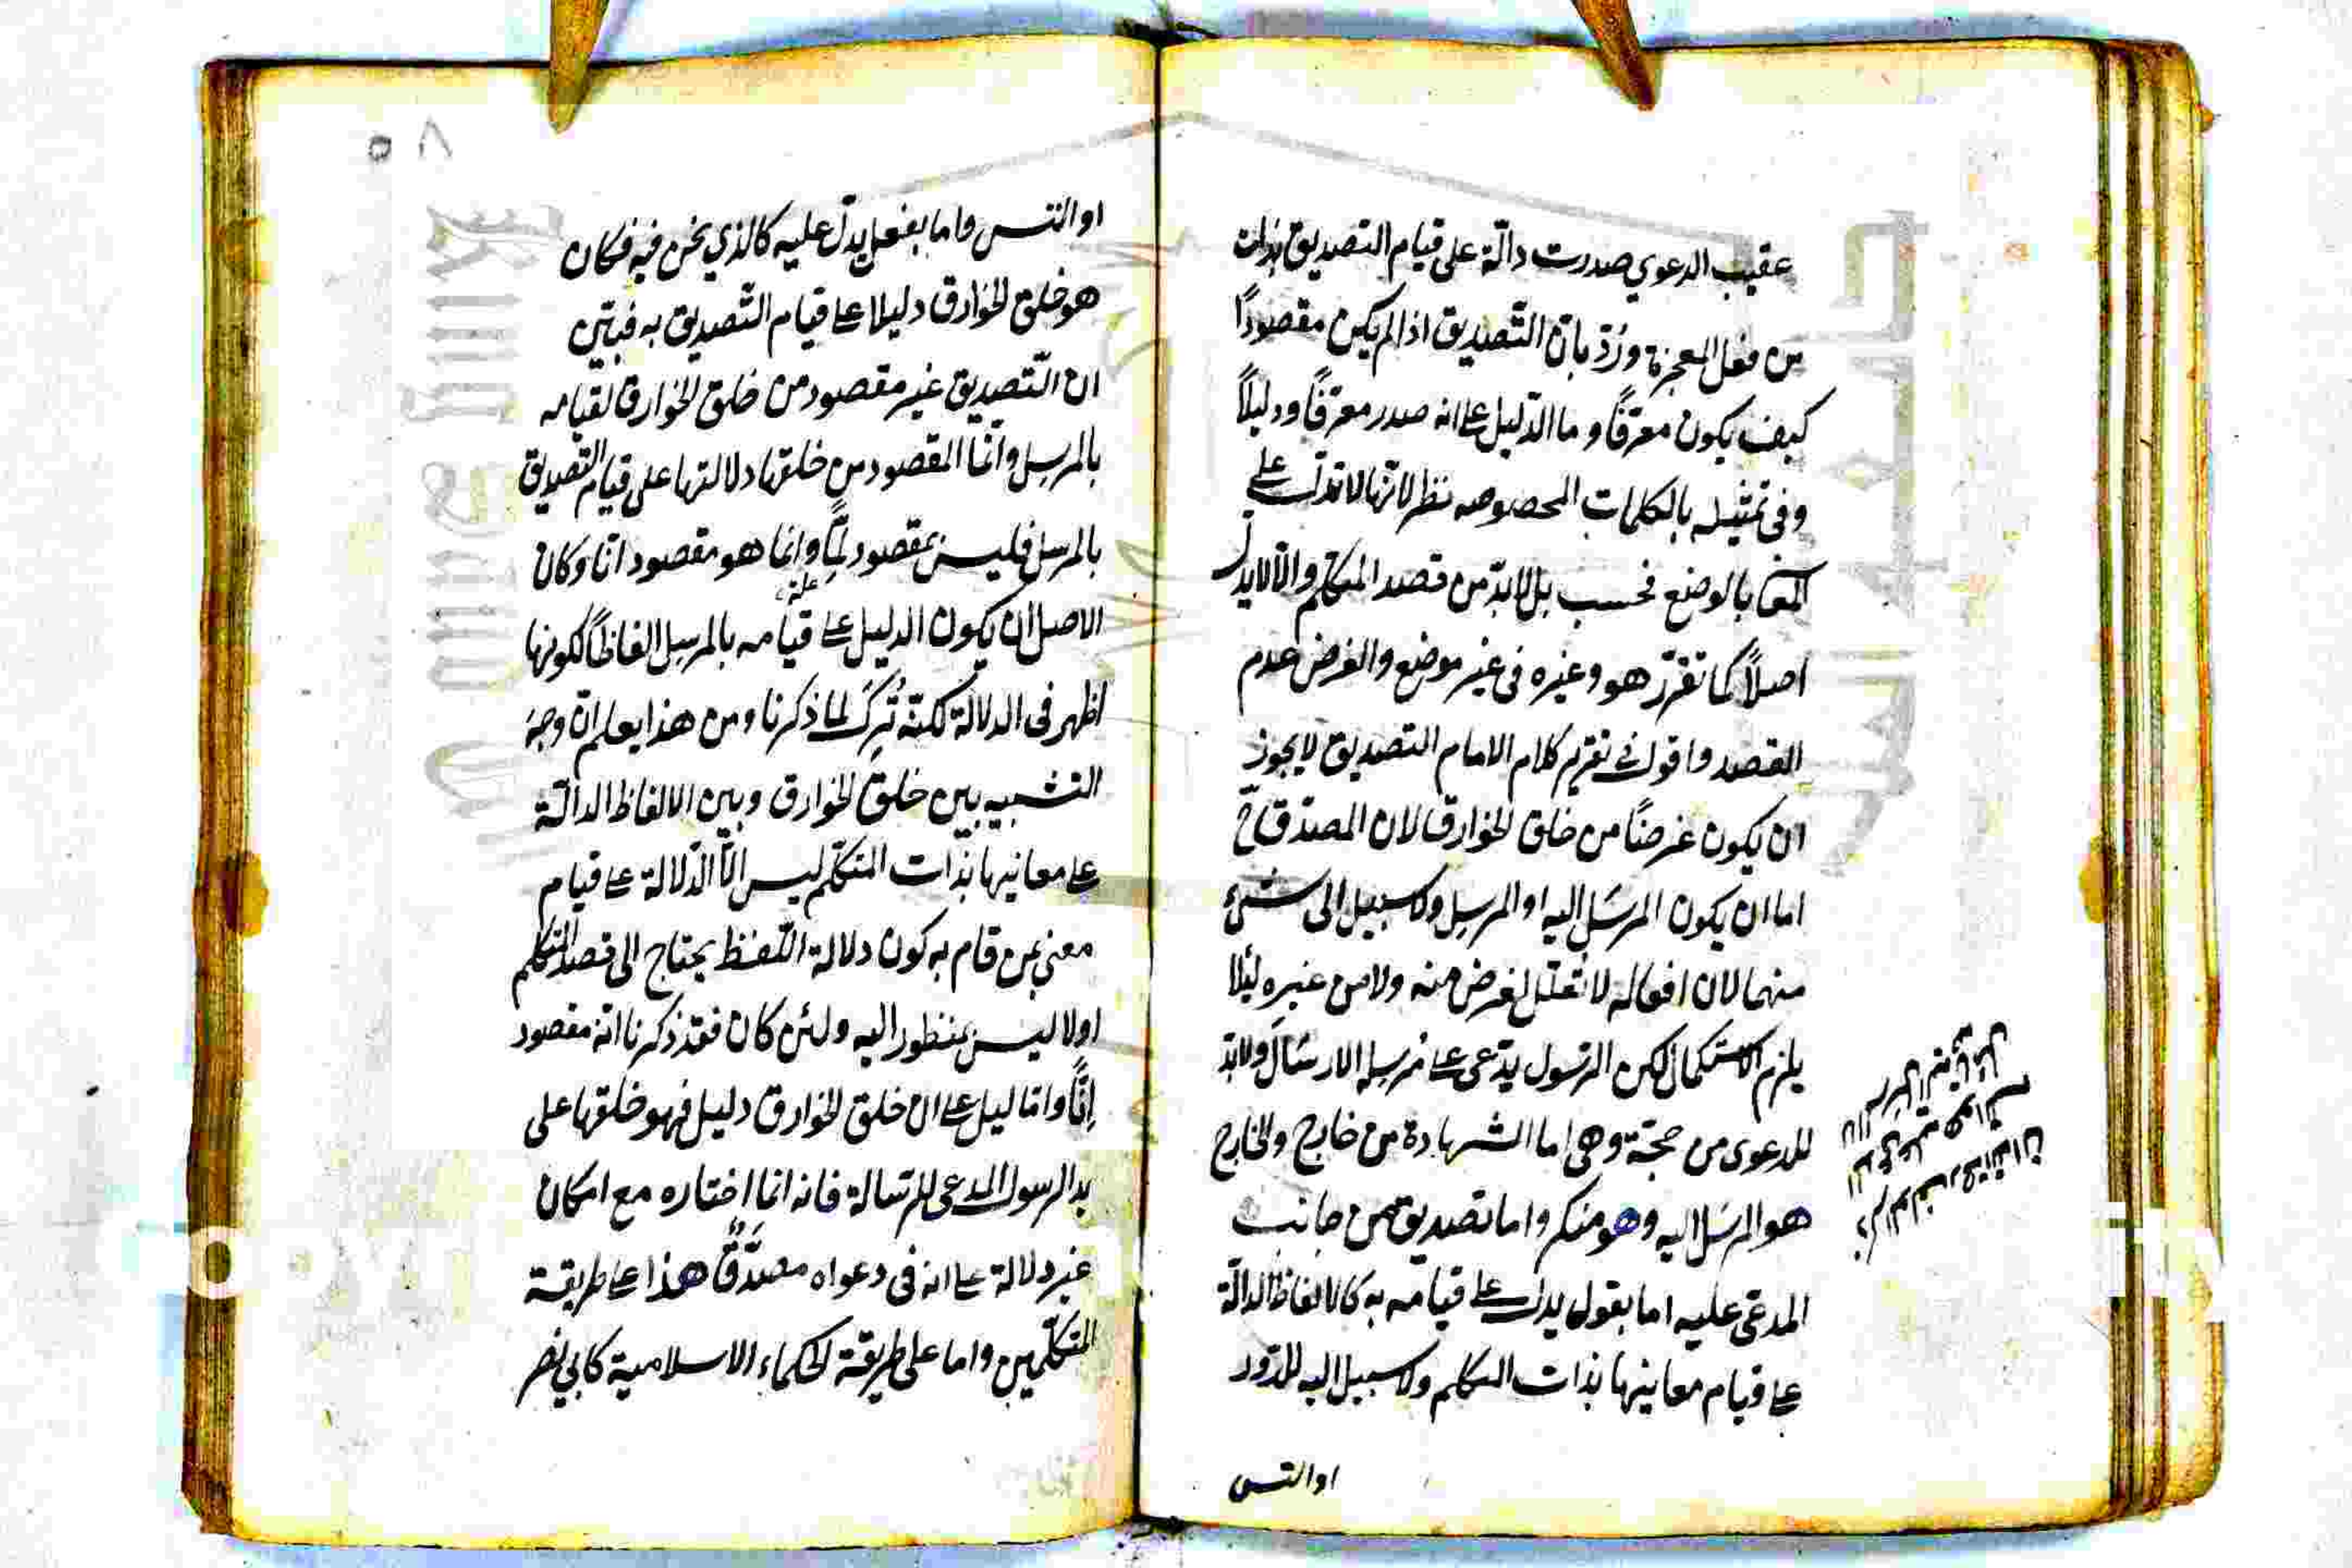 عقيب الدعوي صدرت دالّة على قيام التصديق بذات
من فعل المعجزة ورُدّ بانّ التّصديق اذا لم يكن مقصودًا
كيف يكون معرّفًا و ما الدّليل على انه صدر معرّفًا ودليلاً
وفى تمثيله بالكلمات المخصوصه نظر لانّها لا تدلّ على
المعنى بالوضع فحسب بل لابدّ من قصد المتكلّم والّا لا يدلّ
اصلاً كما تقرّر هو وغيره فى غير موضع والفرض عدم
القصد واقول فى تقرير كلام الامام التصديق لا يجوز
ان يكون غرضًا من خلق الخوارق لان المصدّق ح
اما ان يكون المرسَل اليه او المرسِل ولا سبيل الى شئ
منهما لان افعاله لا تعلّل لغرض منه ولا من غيره لئلا
يلزم الاستكمال لكن الرّسول يدّعى على مُرسِله الارسَال ولابدّ
للدعوى من حجّة وهى اما الشهادة من خارج والخارج
هو المرسَل اليه وهو منكر واما تصديق من جانب
المدعى عليه اما بقول يدل على قيامه به كالالفاظ الدالّة
على قيام معانيها بذات المتكلم ولا سبيل اليه للدّور
او التس
او التس واما بفعل يدلّ عليه كالذي نحن فيه فكان
هو خلق الخوارق دليلا على قيام التّصديق به فتبيّن
ان التّصديق غير مقصود من خلق الخوارق لقيامه
بالمرسِل وانّما المقصود من خلقها دلالتها على قيام التّصديق
بالمرسل فليس بمقصود لِمًّا وانما هو مقصود انّا وكان
الاصل ان يكون الدليل على قيامه بالمرسِل الفاظاً لكونها
اظهر فى الدلالة لكنّه تُرِكَ لما ذكرنا ومن هذا يعلم انّ وجه
التشبيه بين خلق الخوارق وبين الالفاظ الدالّة
على معانيها بذات المتكلّم ليس الاّ الدّلالة على قيام
معني بمن قام به كون دلالة اللّفظ يحتاج الى قصد المتكلّم
اولا ليس بمنظور اليه ولئن كان فقد ذكرنا انّه مقصود
اِنًّا واما ليل على ان خلق الخوارق دليل فهو خلقها على
يد الرسول المدعى للرّسالة فانه انما اختاره مع امكان
غير دلالة على انه فى دعواه مصدّقٌ هذا على طريقة
المتكلّمين واما على طريقة الحكماء الاسلامية كابي نصر